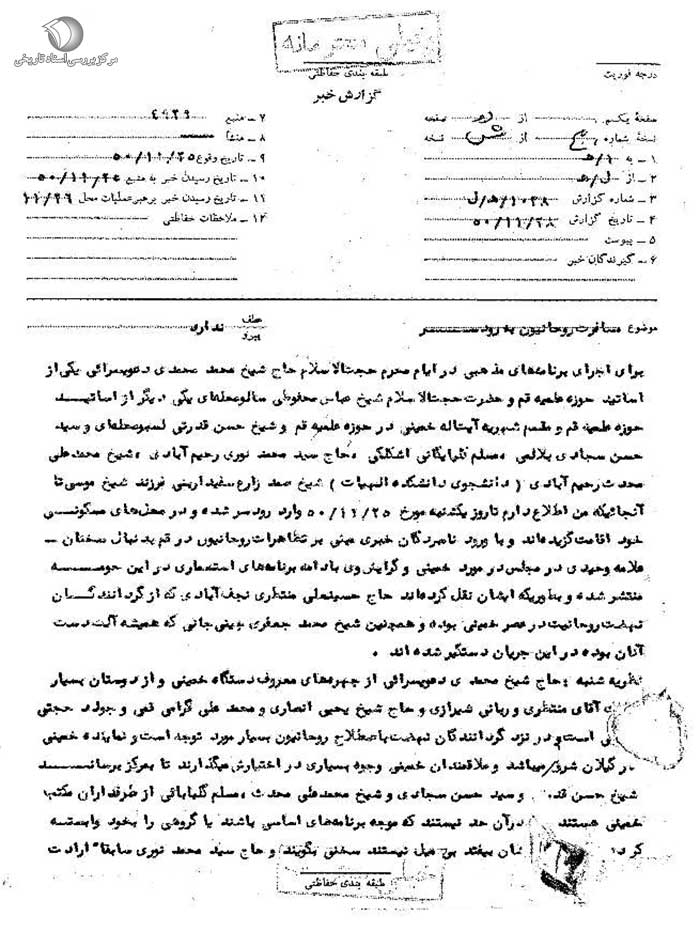 مرکز بررسی اسناد تاریخی
خیلی محرمانه
طبقه بندی حفاظتی
درجه فوریت
گزارش خبر
صفحه یکم از دو صفحه
نسخه شماره از شش نسخه
۱ – به ۱/هـ
۲ – از ل/هـ
۳ – شماره گزارش ۱۰۲۸/هـ/ل
۴ – تاریخ گزارش ۵۰/۱۱/۲۸
۵ – پیوست
۶ – گیرندگان خبر
۷ – منبع ۴۹۲۹
۸ – منشأ
۹ – تاریخ وقوع ۵۰/۱۱/۲۵
۱۰ – تاریخ رسیدن خبر به منبع ۵۰/۱۱/۲۵
۱۱ – تاریخ رسیدن خبر برهبر عملیات محل ۱۱/۲۶
۱۲ – ملاحظات حفاظتی
موضوع مسافرت روحانیون به رودسر
عطف
پیرو
ندارد
برای اجرای برنامه‌های مذهبی در ایام محرم حجت‌الاسلام حاج شیخ محمد محمدی دعویسرائی یکی از
اساتید حوزه علمیه قم و حضرت حجت‌الاسلام شیخ عباس محفوظی سالومحله‌ای یکی دیگر از اساتید
حوزه علمیه قم و مقسم شهریه آیت‌اله خمینی در حوزه علمیه قم و شیخ حسن قدرتی لسبومحله‌ای و سید
حسن سجادی بلاقعی ، مسلم گلبابگانی اشکلکی ، حاج سید محمد نوری رحیم‌آبادی ، شیخ محمدعلی
محدث رحیم آبادی ( دانشجوی دانشکده الهیات ) شیخ صمد زارع سفیداربنی فرزند شیخ موسی تا
آنجائیکه من اطلاع دارم تا روز یکشنبه مورخ ۵۰/۱۱/۲۵ وارد رودسر شده و در محل‌های مسکونی
خود اقامت گزیده‌اند و با ورود نامبردگان خبری مبنی بر تظاهرات روحانیون در قم بدنبال سخنان –
علامه وحیدی در مجلس در مورد خمینی و گرایش وی با ادامه برنامه‌های استعماری در این حومه
منتشر شده و بطوریکه ایشان نقل کرده‌اند حاج حسینعلی منتظری نجف‌آبادی که از گردانندگان
نهضت روحانیت در عصر خمینی بوده و همچنین شیخ محمد جعفری بینی‌جانی که همیشه آلت دست
آنان بوده در این جریان دستگیر شده اند .
نظریه شنبه : حاج شیخ محمدی دعویسرائی از چهره‌های معروف دستگاه خمینی و از دوستان بسیار
آقای منتظری و ربانی شیرازی و حاج شیخ یحیی انصاری و محمد علی گرامی قمی و جواد حجتی
است و در نزد گردانندگان نهضت باصطلاح روحانیون بسیار مورد توجه است و نماینده خمینی
در گیلان شرقی میباشد و علاقمندان خمینی وجوه بسیاری در اختیارش میگذارند تا بمرکز برساند
شیخ حسن و سید حسن سجادی و شیخ محمدعلی محدث ، مسلم گلبابائی از طرفداران مکتب
خمینی هستند در آن حد نیستند که موجه برنامه‌های اساسی باشند یا گروهی را بخود وابسته
بیفتد بی میل نیستند سخنی بگویند و حاج سید محمد نوری سابقا" ارادت
طبقه بندی حفاظتی